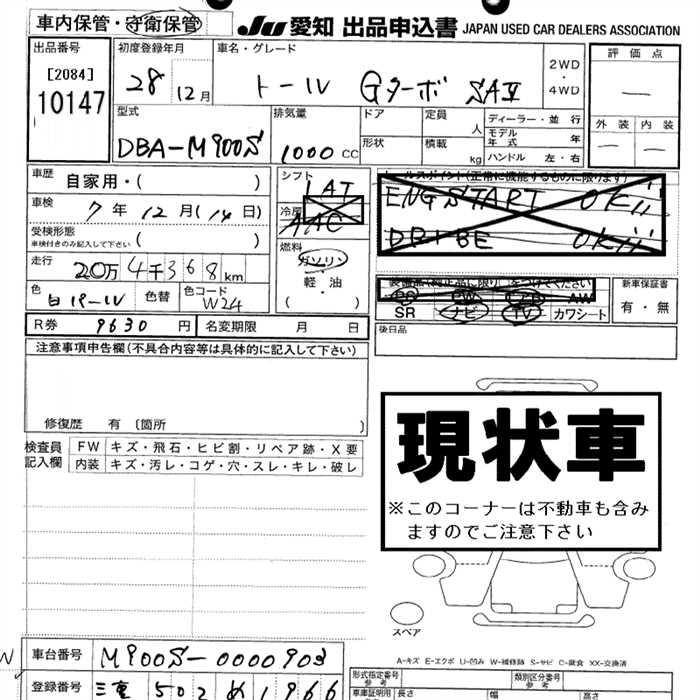 車内保管・守衛保管
JU 愛知 出品申込書 JAPAN USED CAR DEALERS ASSOCIATION
出品番号
[2084]
10147
初度登録年月
28 12月
車名・グレード
トール Gターボ SAⅡ
2WD
・
4WD
評価点
—
外装 内装
— —
型式
DBA-M900S
排気量
1000 CC
ドア
形状
定員 人
積載 kg
ディーラー・並行
モデル年式 年
ハンドル 左・右
車歴 自家用・( )
車検 7年12月(14日)
受検形態
車検付きのみ記入して下さい ( )
走行 20万4千368km
色 白パール
色替
色コード W24
シフト
IAT
冷房
AAC
燃料
ガソリン
・
軽油
( )
セールスポイント(正常に機能するものに限ります)
ENG START OK!!
DR+BE OK!!
装備品(純正品に限り)をつけてください
PS PW AW
SR ナビ TV カワシート
新車保証書
有・無
R券 9630円
名変期限 月 日
後日品
注意事項申告欄(不具合内容等は具体的に記入して下さい)
修復歴 有 〔箇所 〕
検査員記入欄
FW キズ・飛石・ヒビ割・リペア跡・X要
内装 キズ・汚レ・コゲ・穴・スレ・キレ・破レ
現状車
※このコーナーは不動車も含み
ますのでご注意下さい
スペア
A-キズ E-エクボ U-凹み W-補修跡 S-サビ C-腐食 XX-交換済
車台番号 M900S-0000903
登録番号 三重 502 め 1966
形式指定番号
参考
類別区分番号
参考
車庫証明用
参考
長さ
幅
高さ